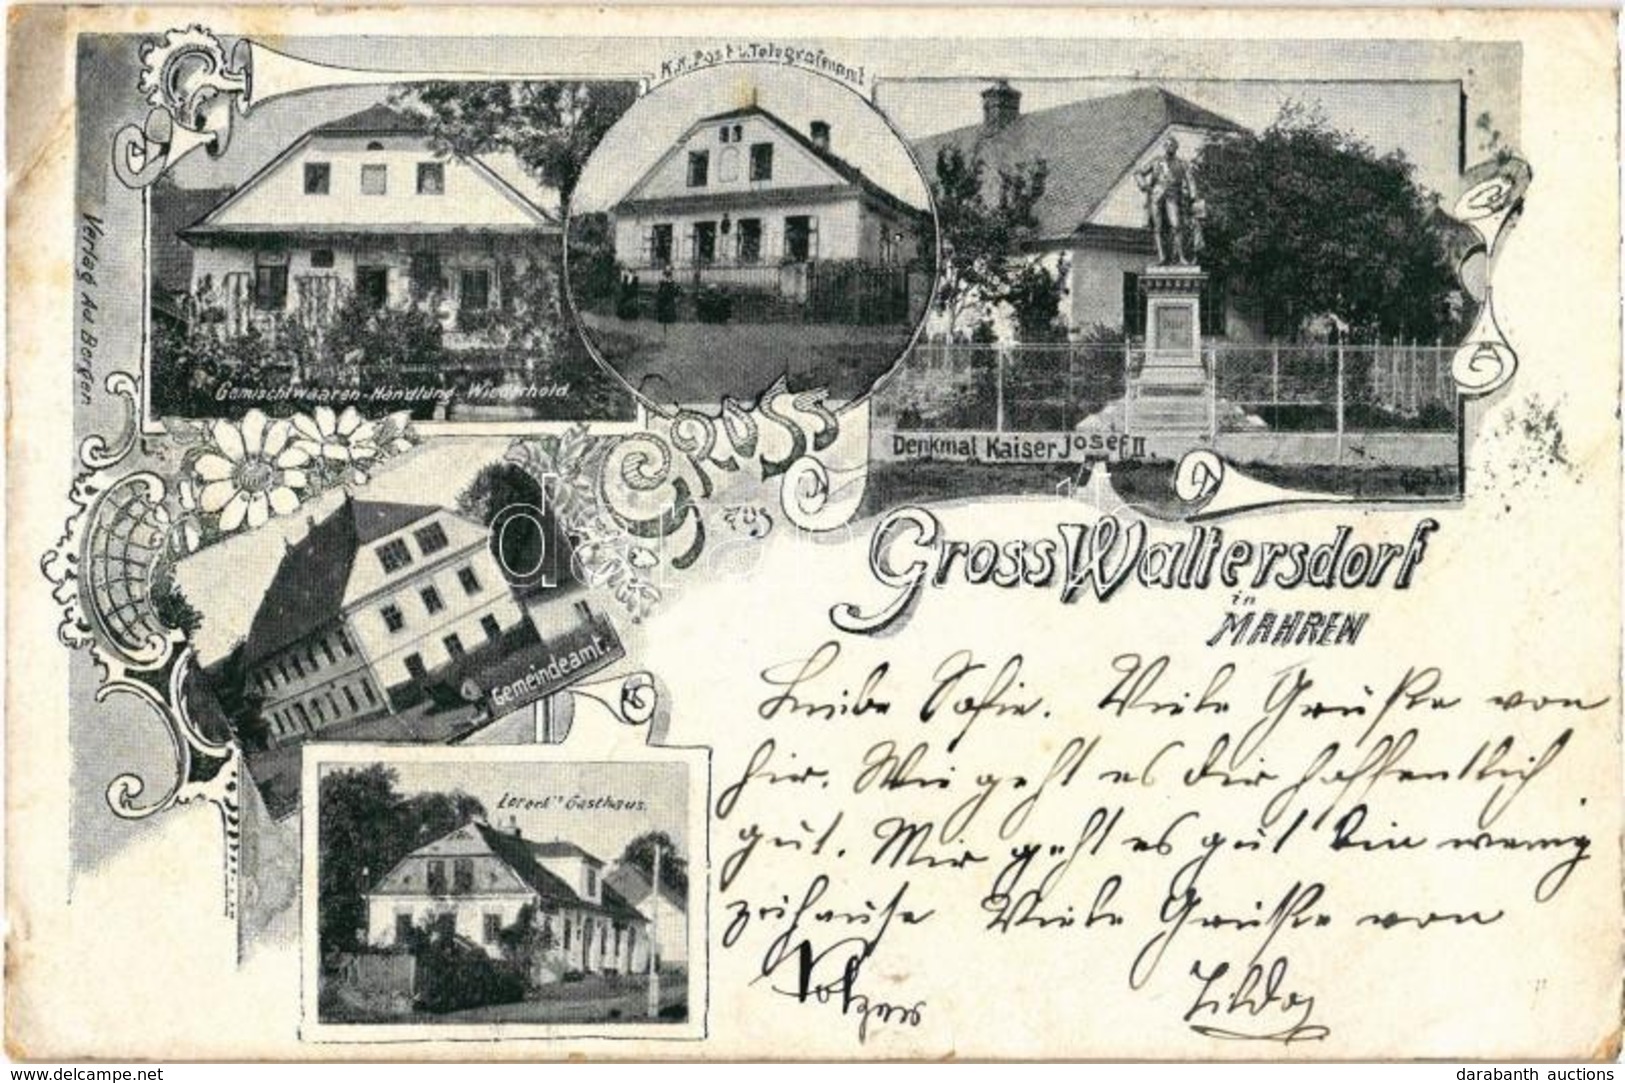 K.K. Post u. Telegrafenamt
Verlag Ad. Berger
Gemischtwaaren-Handlung Wiederhold
Denkmal Kaiser Josef II.
GRUSS
aus
Gross Waltersdorf
in
MÄHREN
Gemeindeamt.
Gasthaus.
Liebe Sofie. Viele Grüße von
hier. Wie geht es Dir hoffentlich
gut. Mir geht es gut bin wenig
zuhause Viele Grüße von
darabanth
www.delcampe.net
darabanth auctions